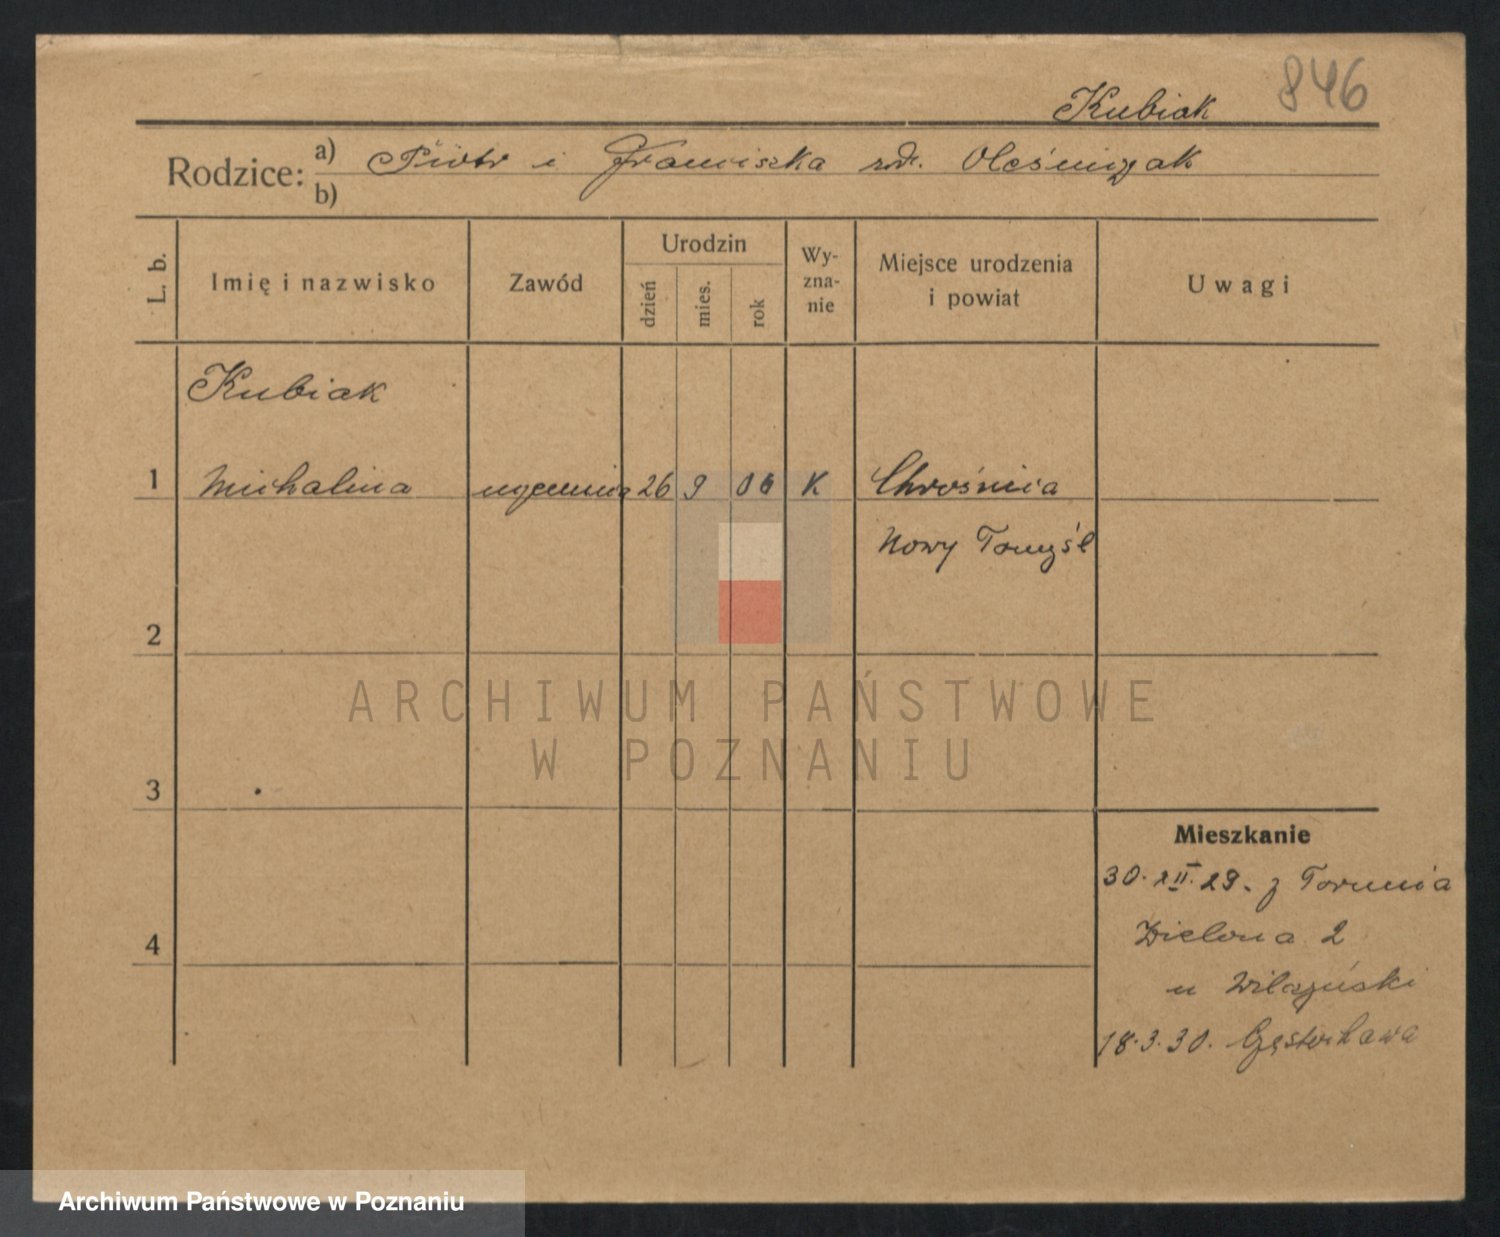 846
Kubiak
Rodzice: a) Piotr i Franciszka zd. Oleśniczak
b)
L. b.
Imię i nazwisko
Zawód
Urodzin
dzień
mies.
rok
Wy-
zna-
nie
Miejsce urodzenia
i powiat
Uwagi
Kubiak
1 Michalina uczennica 26 9 06 K Chrośnica
Nowy Tomyśl
2
3
4
Mieszkanie
30. XII. 29. z Torunia
Zielona 2
u Wilczyński
18.3.30. Częstochowa
ARCHIWUM PAŃSTWOWE
W POZNANIU
Archiwum Państwowe w Poznaniu